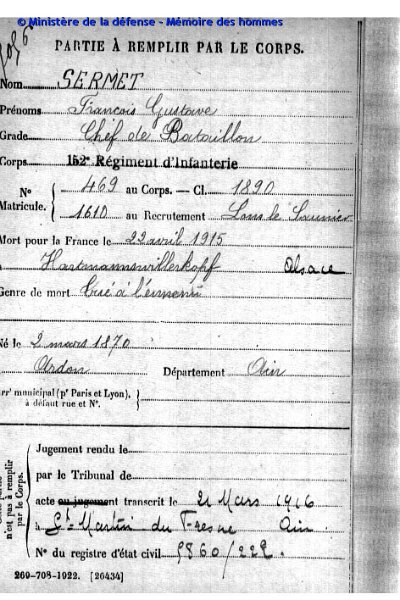 © Ministère de la défense - Mémoire des hommes
PARTIE À REMPLIR PAR LE CORPS.
Nom SERMET
Prénoms François Gustave
Grade Chef de Bataillon
Corps 152e Régiment d'Infanterie
N° 469 au Corps. — Cl. 1890
Matricule. 1610 au Recrutement Lons le Saunier
Mort pour la France le 22 avril 1915
à Hartmannswillerkopf Alsace
Genre de mort Tué à l'ennemi
Né le 2 mars 1870
Ardon Département Ain
arrt municipal (pr Paris et Lyon),
à défaut rue et N°.
n'est pas à remplir
par le Corps.
Jugement rendu le
par le Tribunal de
acte ou jugement transcrit le 21 Mars 1916
à St Martin du Fresne Ain
N° du registre d'état civil 9860/222.
260-708-1922. [26434]